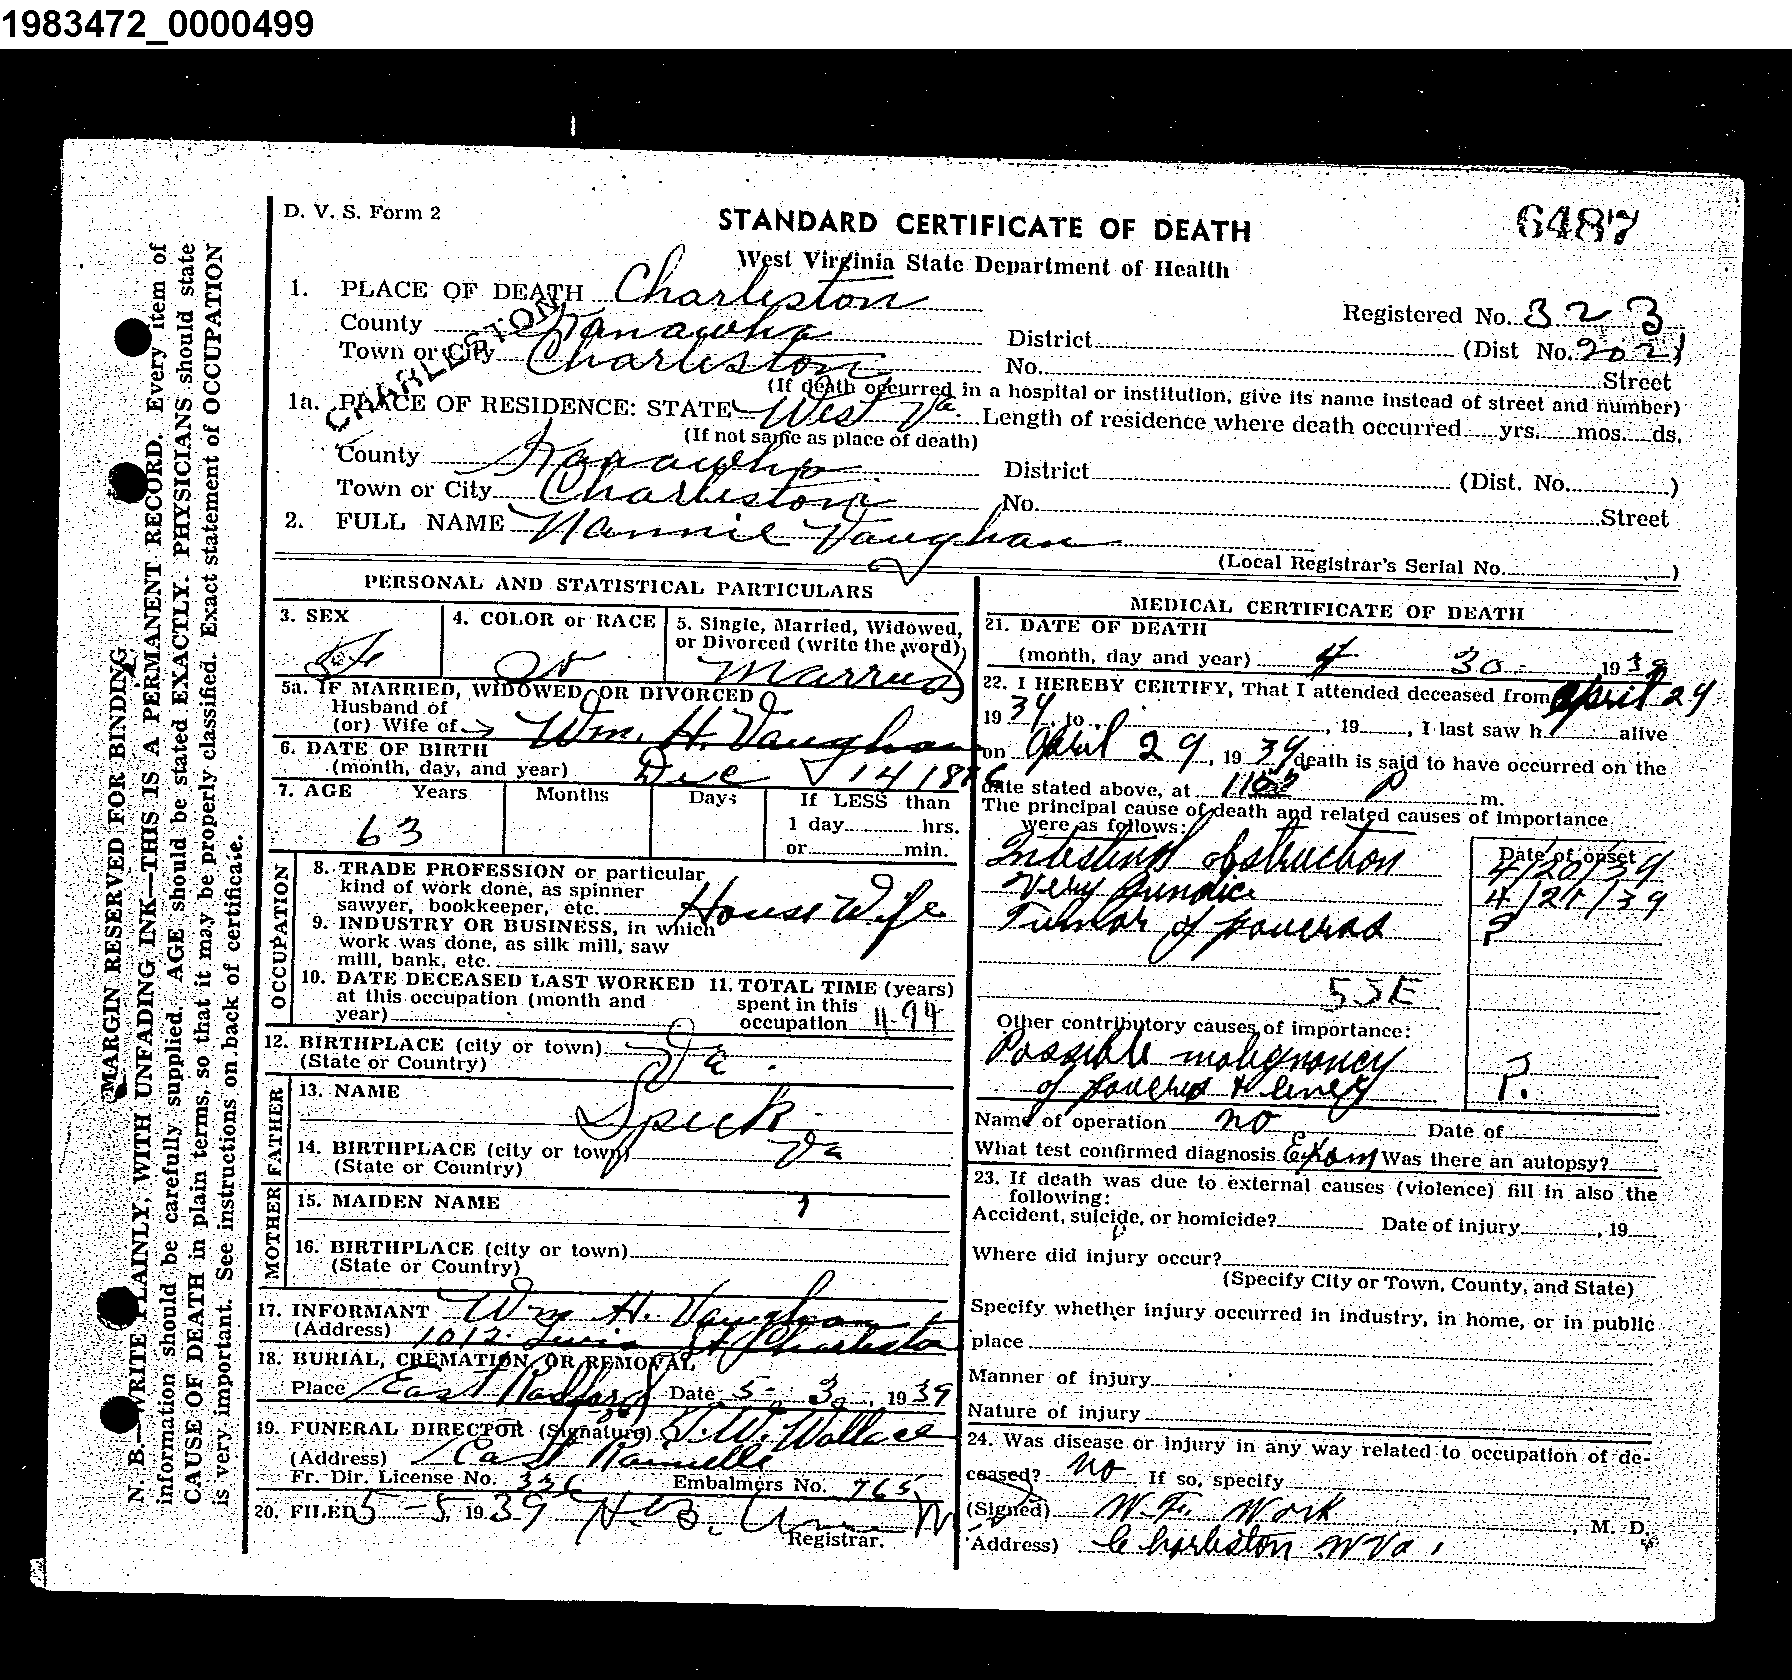 1983472_0000499
D. V. S. Form 2
STANDARD CERTIFICATE OF DEATH
6487
West Virginia State Department of Health
1. PLACE OF DEATH Charleston
Registered No. 323
CHARLESTON
County Kanawha District (Dist No. 202)
Town or City Charleston No. Street
(If death occurred in a hospital or institution, give its name instead of street and number)
1a. PLACE OF RESIDENCE: STATE West Va. Length of residence where death occurred yrs. mos. ds.
(If not same as place of death)
County Kanawha District (Dist. No. )
Town or City Charleston No. Street
2. FULL NAME Nannie Vaughan
(Local Registrar's Serial No. )
PERSONAL AND STATISTICAL PARTICULARS
3. SEX Fe
4. COLOR or RACE W
5. Single, Married, Widowed, or Divorced (write the word)
Married
5a. IF MARRIED, WIDOWED, OR DIVORCED
Husband of
(or) Wife of Wm. H. Vaughan
6. DATE OF BIRTH
(month, day, and year) Dec 14 18
7. AGE Years Months Days If LESS than
1 day hrs.
or min.
63
OCCUPATION
8. TRADE PROFESSION or particular
kind of work done, as spinner
sawyer, bookkeeper, etc. House Wife
9. INDUSTRY OR BUSINESS, in which
work was done, as silk mill, saw
mill, bank, etc.
10. DATE DECEASED LAST WORKED
at this occupation (month and
year)
11. TOTAL TIME (years)
spent in this
occupation 494
12. BIRTHPLACE (city or town)
(State or Country) Va.
FATHER
13. NAME
Speck
14. BIRTHPLACE (city or town) Va
(State or Country)
MOTHER
15. MAIDEN NAME
16. BIRTHPLACE (city or town)
(State or Country)
17. INFORMANT Wm H. Vaughan
(Address) 1012 Lewis St Charleston
18. BURIAL, CREMATION, OR REMOVAL
Place East Radford Date 5- 3, 1939
19. FUNERAL DIRECTOR (Signature) J. W. Wallace
(Address) East Rainelle
Fr. Dir. License No. 336 Embalmers No. 765
20. FILED 5-5, 1939 H. B.
Registrar.
MEDICAL CERTIFICATE OF DEATH
21. DATE OF DEATH
(month, day and year) 4 30 1939
22. I HEREBY CERTIFY, That I attended deceased from April 24
1939, to , 19 , I last saw h alive
on April 29, 1939, death is said to have occurred on the
date stated above, at P m.
The principal cause of death and related causes of importance
were as follows:
Date of onset
Intestinal obstruction 4/20/39
Very Jundice 4/21/39
Tumor of pancreas ?
55E
Other contributory causes of importance:
Possible malignancy
of pancreas & liver ?
Name of operation no Date of
What test confirmed diagnosis Exam Was there an autopsy?
23. If death was due to external causes (violence) fill in also the
following:
Accident, suicide, or homicide? Date of injury , 19
Where did injury occur?
(Specify City or Town, County, and State)
Specify whether injury occurred in industry, in home, or in public
place
Manner of injury
Nature of injury
24. Was disease or injury in any way related to occupation of de-
ceased? no If so, specify
(Signed) W. F. Work, M. D.
Address) Charleston W Va.
MARGIN RESERVED FOR BINDING
N. B.—WRITE PLAINLY, WITH UNFADING INK—THIS IS A PERMANENT RECORD. Every item of
information should be carefully supplied. AGE should be stated EXACTLY. PHYSICIANS should state
CAUSE OF DEATH in plain terms, so that it may be properly classified. Exact statement of OCCUPATION
is very important. See instructions on back of certificate.